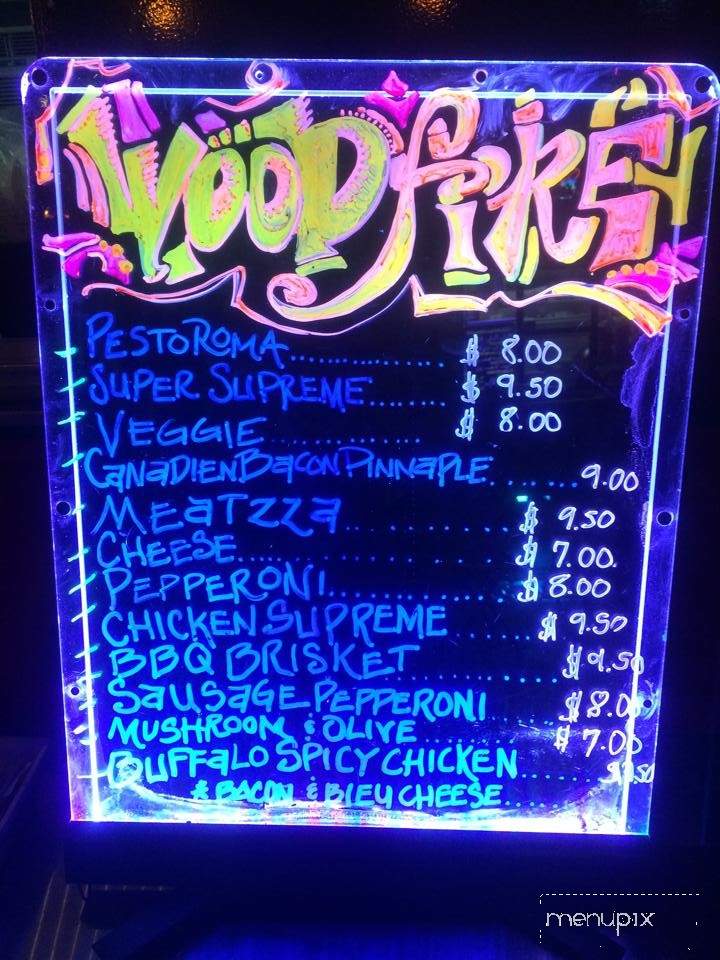 WOOD fiRE
PESTO ROMA.................. $ 8.00
SUPER SUPREME....... $ 9.50
VEGGIE ............ $ 8.00
CANADIEN BACON PINNAPLE........ 9.00
MEATZZA............... $ 9.50
CHEESE........................ $ 7.00.
PEPPERONI.................. $ 8.00
CHICKEN SUPREME ...... $ 9.50
BBQ BRISKET............ $ 9.50
SAUSAGE PEPPERONI ...... $ 8.00
MUSHROOM & OLIVE........... $ 7.00
BUFFALO SPICY CHICKEN....... 9.50
& BACON & BLEU CHEESE......
menupix